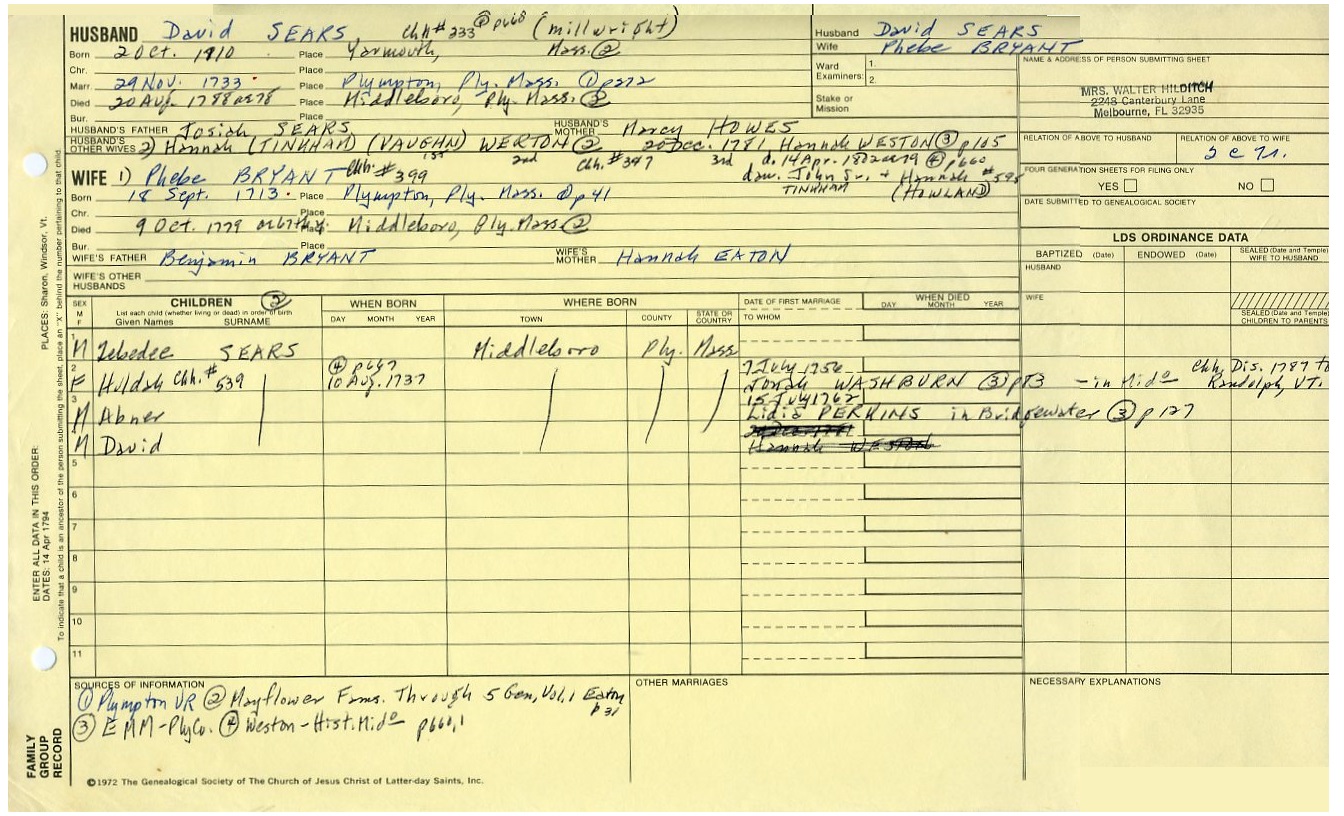 HUSBAND David SEARS, Chh# 333 ④ p668 (millwright)
Born 2 Oct. 1910 Place Yarmouth, Mass. ②
Chr. Place
Marr. 29 Nov. 1733 Place Plympton, Ply. Mass. ① p272
Died 20 Aug. 1788 or 78 Place Middleboro, Ply. Mass. ②
Bur. Place
HUSBAND'S FATHER Josiah SEARS HUSBAND'S MOTHER Marcy HOWES
HUSBAND'S OTHER WIVES 2) Hannah (TINKHAM) (VAUGHN) WERTON ② 20 Dec. 1781 Hannah WESTON ③ p105
1st 2nd Chh. # 347 3rd d. 14 Apr. 1802 ae 79 ④ p660
dau. John Sr. + Hannah #595
TINKHAM (HOWLAND)
Husband David SEARS
Wife Phebe BRYANT
Ward Examiners: 1.
2.
Stake or Mission
NAME & ADDRESS OF PERSON SUBMITTING SHEET
MRS. WALTER HILDITCH
2248 Canterbury Lane
Melbourne, FL 32935
RELATION OF ABOVE TO HUSBAND RELATION OF ABOVE TO WIFE
FOUR GENERATION SHEETS FOR FILING ONLY
YES NO
DATE SUBMITTED TO GENEALOGICAL SOCIETY
WIFE 1) Phebe BRYANT Chh. # 399
Born 18 Sept. 1713 Place Plympton, Ply. Mass. ① p 41
Chr. Place
Died 9 Oct. 1779 Place Middleboro, Ply. Mass. ②
Bur. Place
WIFE'S FATHER Benjamin BRYANT WIFE'S MOTHER Hannah EATON
WIFE'S OTHER HUSBANDS
LDS ORDINANCE DATA
BAPTIZED (Date) ENDOWED (Date) SEALED (Date and Temple) WIFE TO HUSBAND
HUSBAND
WIFE
SEALED (Date and Temple) CHILDREN TO PARENTS
SEX M F CHILDREN ② WHEN BORN WHERE BORN DATE OF FIRST MARRIAGE WHEN DIED
List each child (whether living or dead) in order of birth
Given Names SURNAME DAY MONTH YEAR TOWN COUNTY STATE OR COUNTRY TO WHOM DAY MONTH YEAR
1 M Zebedee SEARS Middleboro Ply. Mass
2 F Huldah Chh. # 539 ④ p667 10 Aug. 1737 7 July 1756 Jonah WASHBURN ③ p73 - in Mido Chh. Dis. 1787 to Randolph, VT.
3 M Abner 15 July 1762 Lidia PERKINS in Bridgewater ③ p 127
4 M David Hannah WESTON
5
6
7
8
9
10
11
SOURCES OF INFORMATION
① Plympton VR ② Mayflower Fams. Through 5 Gen, Vol. 1 Eaton p 31
③ EMM-PlyCo. ④ Weston-Hist. Mido p660,1
OTHER MARRIAGES
NECESSARY EXPLANATIONS
©1972 The Genealogical Society of The Church of Jesus Christ of Latter-day Saints, Inc.
FAMILY GROUP RECORD
ENTER ALL DATA IN THIS ORDER:
DATES: 14 Apr 1794
PLACES: Sharon, Windsor, Vt.
To indicate that a child is an ancestor of the person submitting the sheet, place an "X" behind the number pertaining to that child.